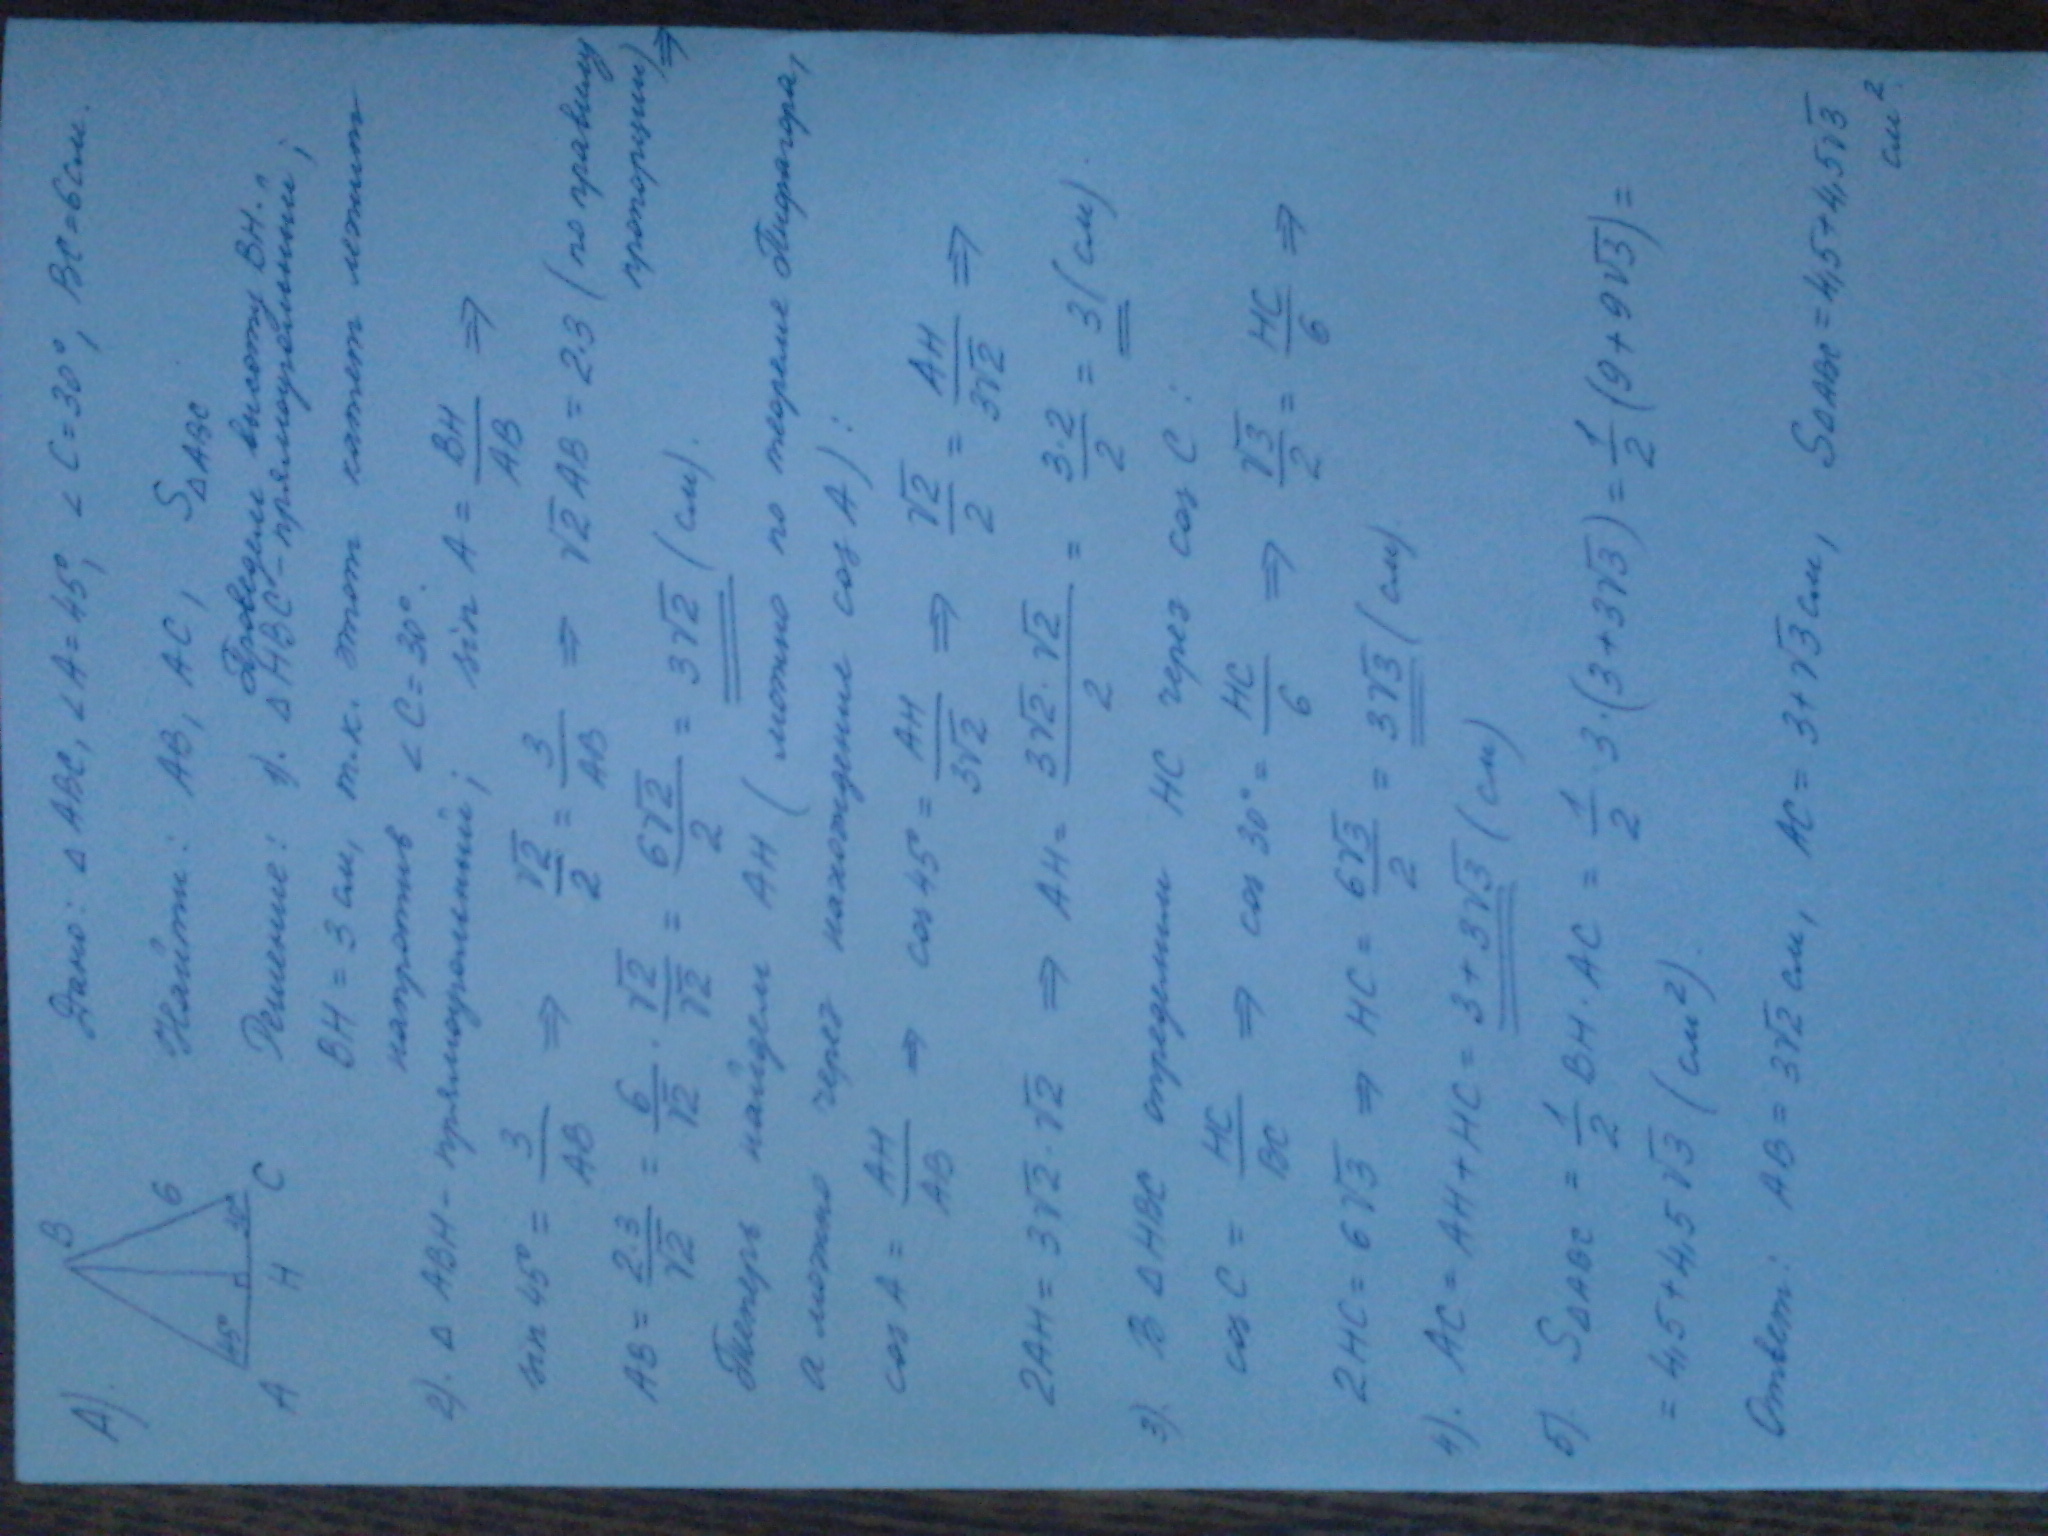 А).
B
6
45°
30°
A H C
Дано: Δ ABC, ∠A=45°, ∠C=30°, BC=6см.
Найти: AB, AC, S ΔABC
Проведем высоту BH.
Решение: 1). Δ HBC - прямоугольный;
BH = 3 см, т.к. этот катет лежит
напротив ∠C=30°.
2). Δ ABH - прямоугольный; sin A = BH/AB ⇒
sin 45° = 3/AB ⇒ √2/2 = 3/AB ⇒ √2 AB = 2·3 (по правилу
пропорции) ⇒
AB = 2·3/√2 = 6/√2 · √2/√2 = 6√2/2 = 3√2 (см).
Теперь найдем AH (можно по теореме Пифагора,
а можно через нахождение cos A):
cos A = AH/AB ⇒ cos 45° = AH/3√2 ⇒ √2/2 = AH/3√2 ⇒
2AH = 3√2·√2 ⇒ AH = 3√2·√2/2 = 3·2/2 = 3 (см)
3). В Δ HBC определим HC через cos C:
cos C = HC/BC ⇒ cos 30° = HC/6 ⇒ √3/2 = HC/6 ⇒
2HC = 6√3 ⇒ HC = 6√3/2 = 3√3 (см)
4). AC = AH + HC = 3 + 3√3 (см)
5). SΔABC = 1/2 BH·AC = 1/2 · 3·(3+3√3) = 1/2 (9+9√3) =
= 4,5 + 4,5√3 (см²).
Ответ: AB = 3√2 см, AC = 3+√3 см, SΔABC = 4,5+4,5√3
см²